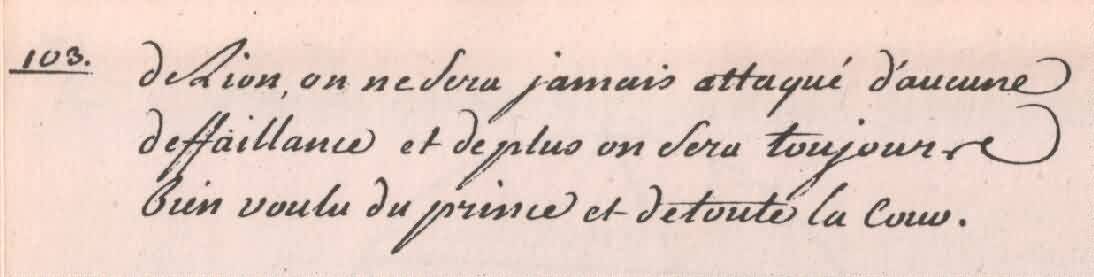 103. de Lion, on ne sera jamais attaqué d'aucune
deffaillance et de plus on sera toujours
bien voulu du prince et de toute la Cour.